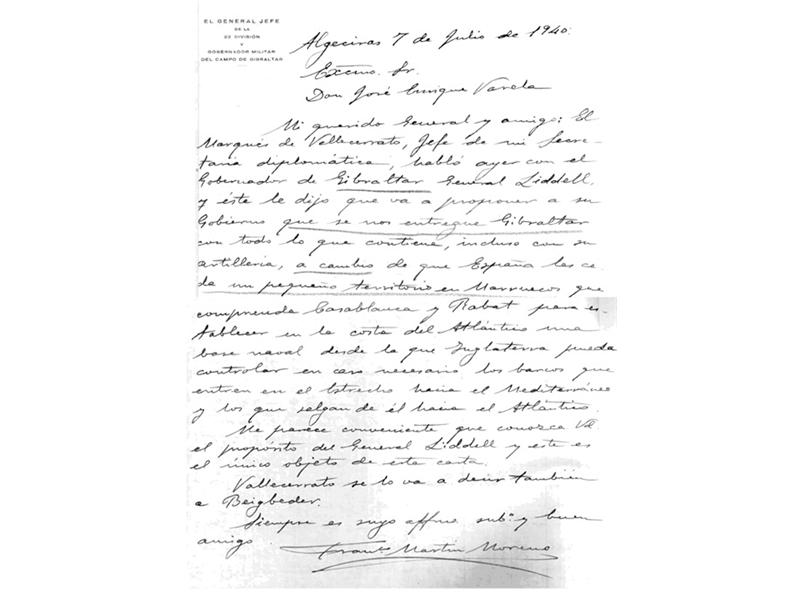 EL GENERAL JEFE
DE LA
22 DIVISIÓN
Y
GOBERNADOR MILITAR
DEL CAMPO DE GIBRALTAR
Algeciras 7 de Julio de 1940.
Excmo. Sr.
Don José Enrique Varela
Mi querido General y amigo: El
Marqués de Vallecerrato, Jefe de mi Secre-
taria diplomática, habló ayer con el
Gobernador de Gibraltar General Liddell,
y éste le dijo que va a proponer a su
Gobierno que se nos entregue Gibraltar
con todo lo que contiene, incluso con su
artillería, a cambio de que España les ce-
da un pequeño territorio en Marruecos que
comprenda Casablanca y Rabat para es-
tablecer en la costa del Atlántico una
base naval desde la que Inglaterra pueda
controlar en caso necesario los barcos que
entren en el Estrecho hacia el Mediterráneo
y los que salgan de él hacia el Atlántico.
Me parece conveniente que conozca Vd
el propósito del General Liddell y este es
el único objeto de esta carta.
Vallecerrato se lo va a decir también
a Beigbeder.
Siempre es suyo affmo subº y buen
amigo
Franco Martin Moreno